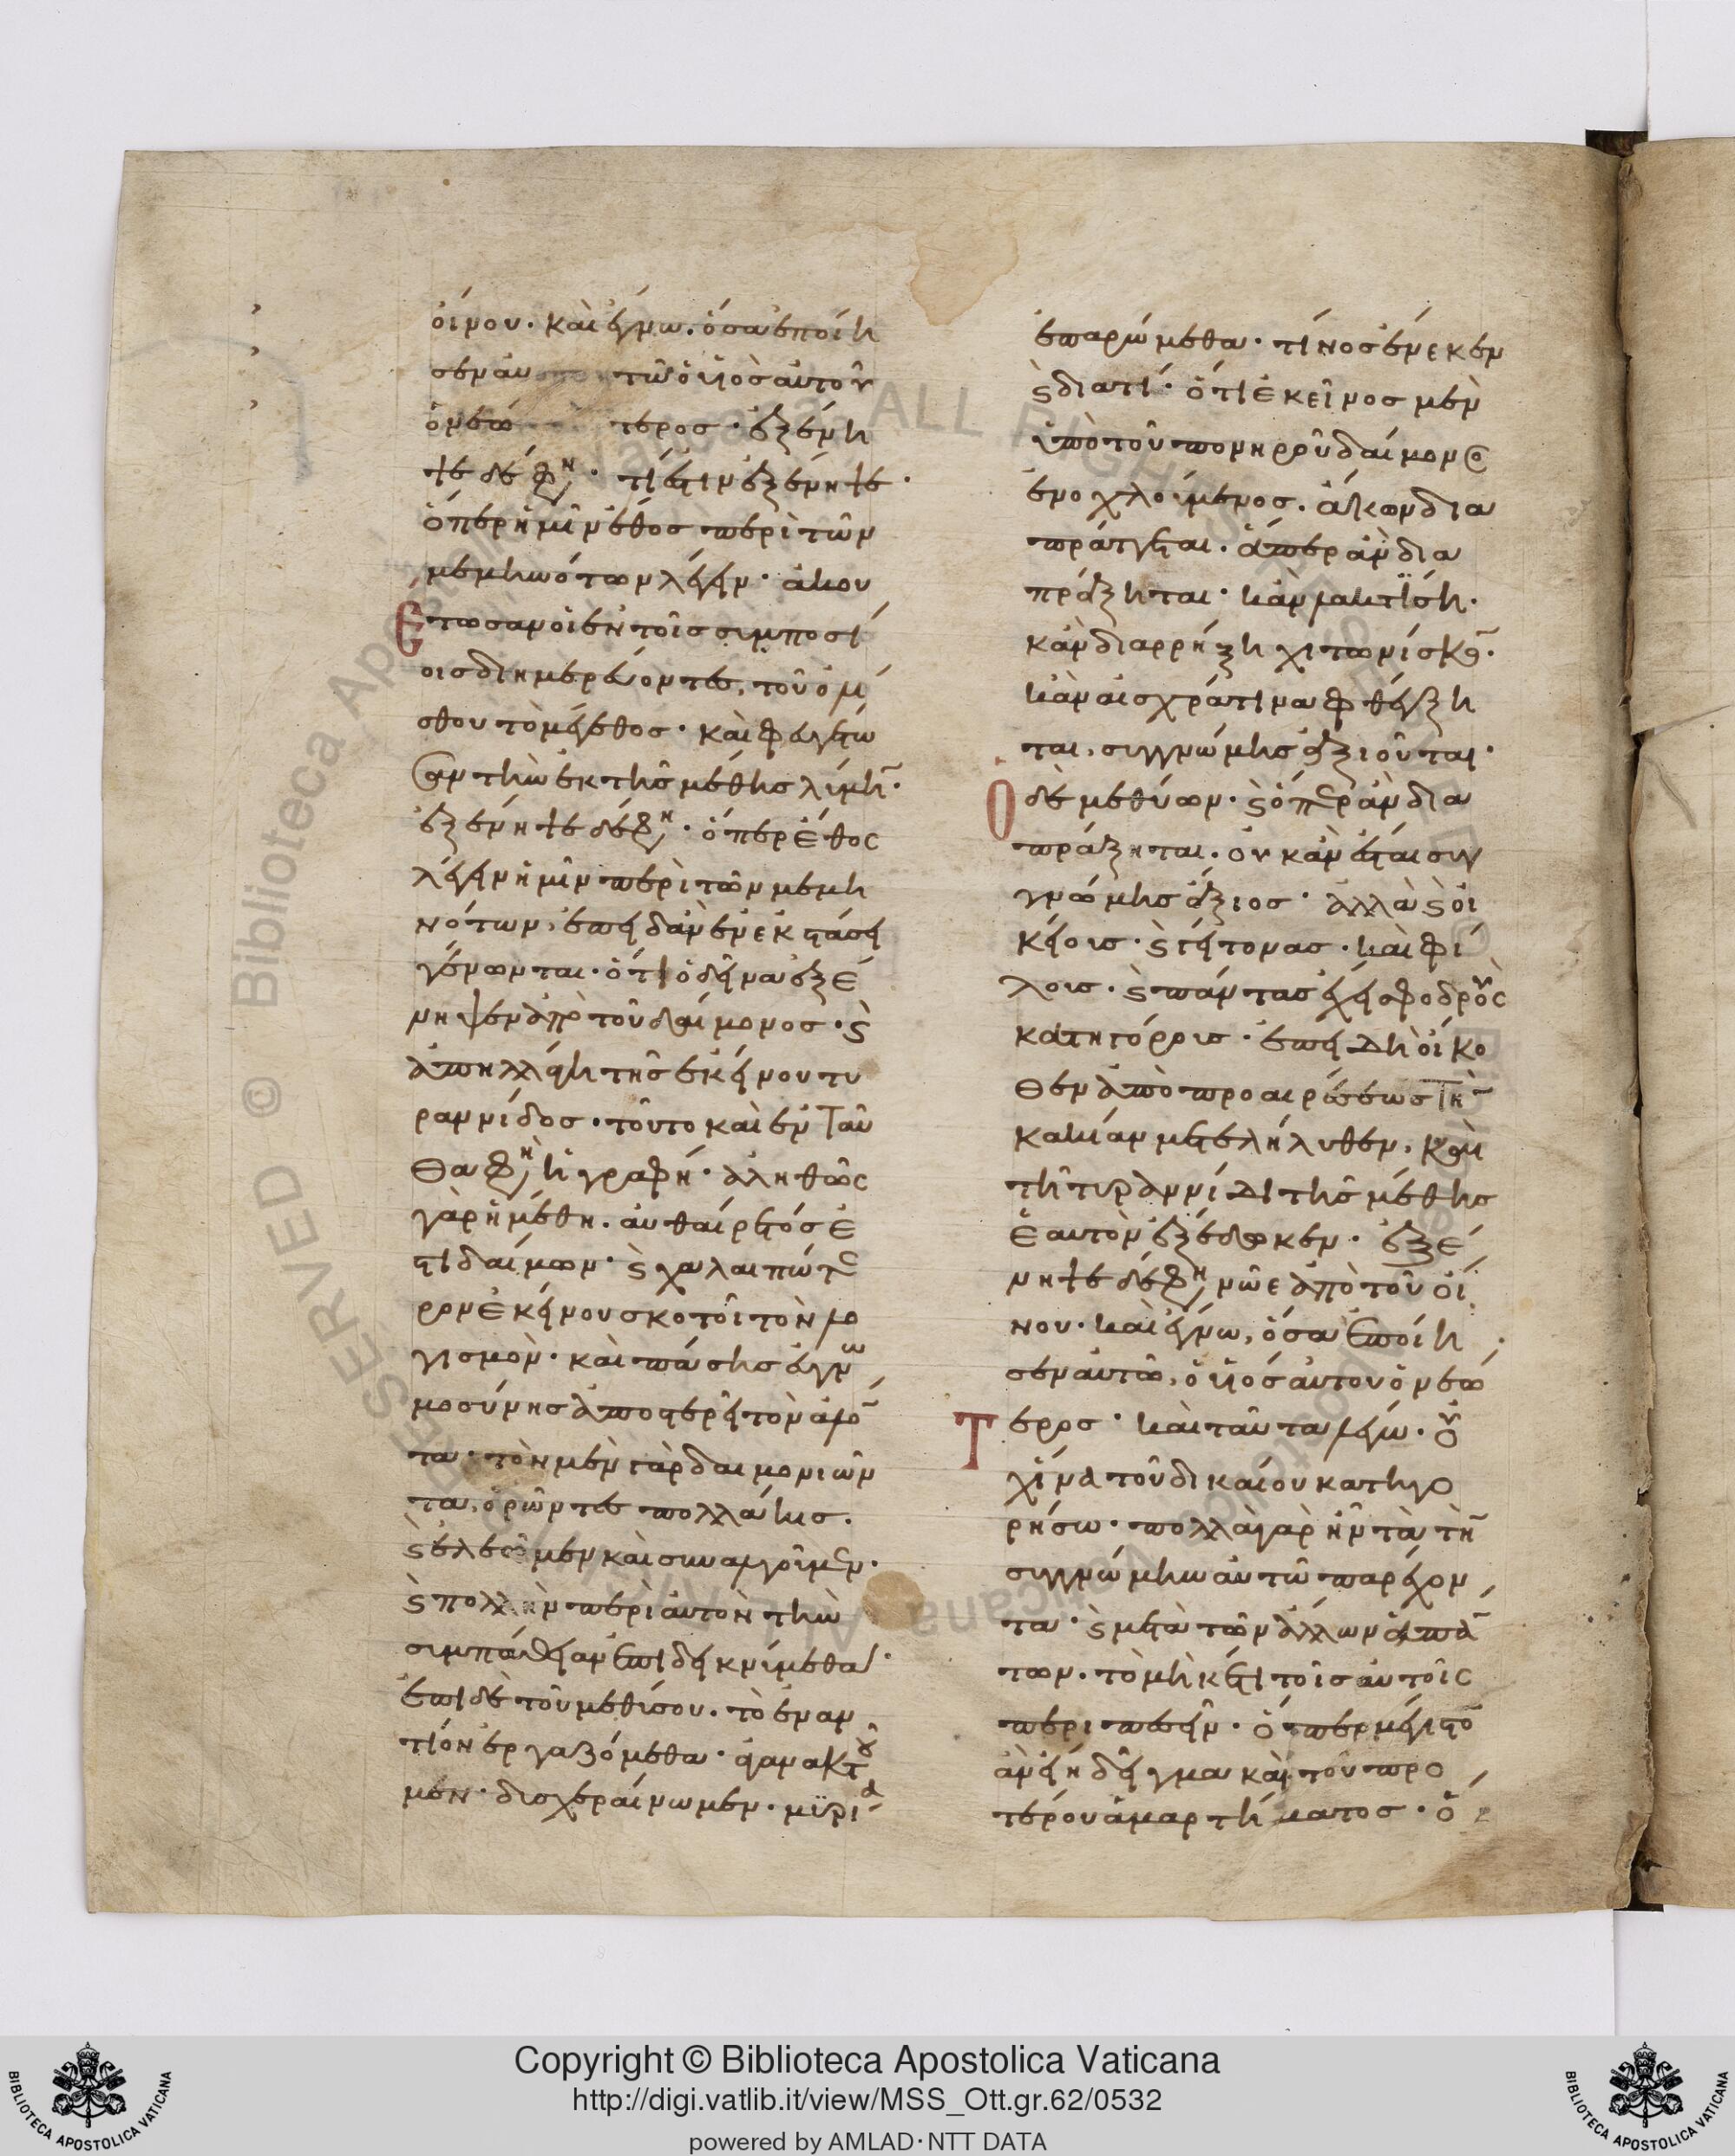 οἴνου· καὶ ἔγνω. ὅσα ἐποίη
σεν αὐτῶ ὁ υἱὸς αὐτοῦ
ὁ νεώτερος· ἐξένη
ψε δέ φη· τί ἐστιν ἐξένηψε·
ὅπερ ἡμῖν ἔθος περὶ τῶν
μεμηνότων λέγειν· ἀκου
έτωσαν οἱ ἐν τοῖς συμποσί
οις διημερεύοντες, τοῦ ὀλί
σθου τὸ μέγεθος· καὶ φευγέτω
σαν τὴν ἐκ τῆς μέθης λύμην·
ἐξένηψε δέ φη· ὅπερ ἔθος
λέγειν ἡμῖν περὶ τῶν μεμη
νότων, ἐπειδὰν ἐν ἐκστάσει
γένωνται· ὅτι ὁ δεῖνα ἐξέ
νηψεν ἀπὸ τοῦ δαίμονος· καὶ
ἀπηλλάγη τῆς ἐκείνου τυ
ραννίδος· τοῦτο καὶ ἐνταῦ
θα φη ἡ γραφή· ἀληθῶς
γὰρ ἡ μέθη. αὐθαίρετός ἐ
στι δαίμων· καὶ χαλαιπώτε
ρον ἐκείνου σκοτοῖ τὸν λο
γισμὸν· καὶ πάσης εὐγνω
μοσύνης ἀποστερεῖ τὸν ἁλό
τα· τὸν μὲν γὰρ δαιμονιῶν
τα, ὁρῶντες πολλάκις.
καὶ ἐλεῶμεν καὶ συναλγοῦμεν·
καὶ πολλὴν περὶ αὐτὸν τὴν
συμπάθειαν ἐπιδεικνύμεθα·
ἐπὶ δὲ τοῦ μεθύσου. τὸ ἐναν
τίον ἐργαζόμεθα· ἀγανακτοῦ
μεν· δυσχεραίνωμεν· μυρία
ἐπαρώμεθα· τίνος ἕνεκεν
καὶ διατί· ὅτι ἐκεῖνος μὲν
ὑπὸ τοῦ πονηροῦ δαίμονος
ἐνοχλούμενος. ἄκων δια
πράττεται. ἅπερ ἂν δια
πράξηται· κἂν λακτίση·
κἂν διαρρήξη χιτωνίσκον·
κἂν αἰσχρά τινα φθέγξη
ται, συγγνώμης ἀξιοῦται·
Ὁ δὲ μεθύων· καὶ ὅπερ ἂν δια
πράξηται. οὐκ ἂν εἴη συγ
γνώμης ἄξιος· ἀλλὰ καὶ οἰ
κέοις· καὶ γείτονας· καὶ φί
λοις· καὶ πάντας ἔχει σφοδροὺς
κατηγόρους· ἐπειδὴ οἴκο
θεν ἀπὸ προαιρέσεως τὴν
κακίαν μετελήλυθεν, καὶ
τῆ τυραννίδι τῆς μέθης
ἑαυτὸν ἐξέδωκεν· ἐξέ
νηψε δέ φη νῶε ἀπὸ τοῦ οἴ
νου· καὶ ἔγνω, ὅσα ἐποίη
σεν αὐτῶ, ὁ υἱός αὐτου ὁ νεώ
τερος· καὶ ταῦτα λέγω· οὐ
χ ἵνα τοῦ δικαίου κατηγο
ρήσω· πολλὰ γὰρ ἦν τὰ τὴν
συγγνώμην αὐτῶ παρέχον
τα· καὶ μετὰ τῶν ἄλλων ἁπάν
των. τὸ μηκέτι τοῖς αὐτοῖς
περιπεσεῖν· ὅπερ μέγιστον
ἂν εἴη δεῖγμα καὶ τοῦ προ
τέρου ἁμαρτήματος· ὅ
Copyright © Biblioteca Apostolica Vaticana
http://digi.vatlib.it/view/MSS_Ott.gr.62/0532
powered by AMLAD·NTT DATA
BIBLIOTECA APOSTOLICA VATICANA
BIBLIOTECA APOSTOLICA VATICANA